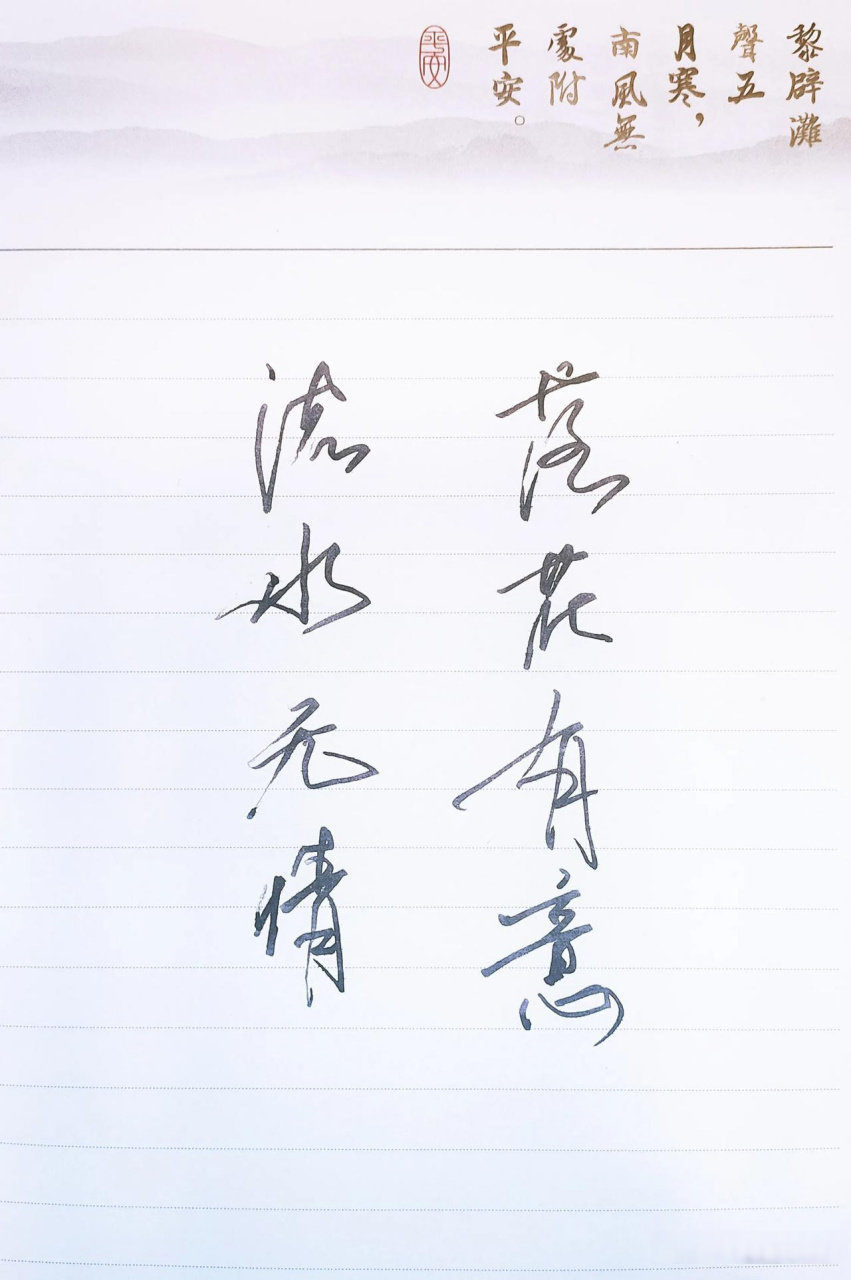 黎辟灘
聲五
月寒，
南風無
處附
平安。
平安
落花有意
流水无情